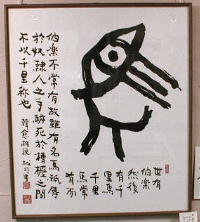 世有
伯樂
然後
有千
里馬
千里
馬常
有而
伯樂不常有故雖有名馬祇辱
於奴隷人之手駢死於槽櫪之間
不以千里称也 韓愈雜説